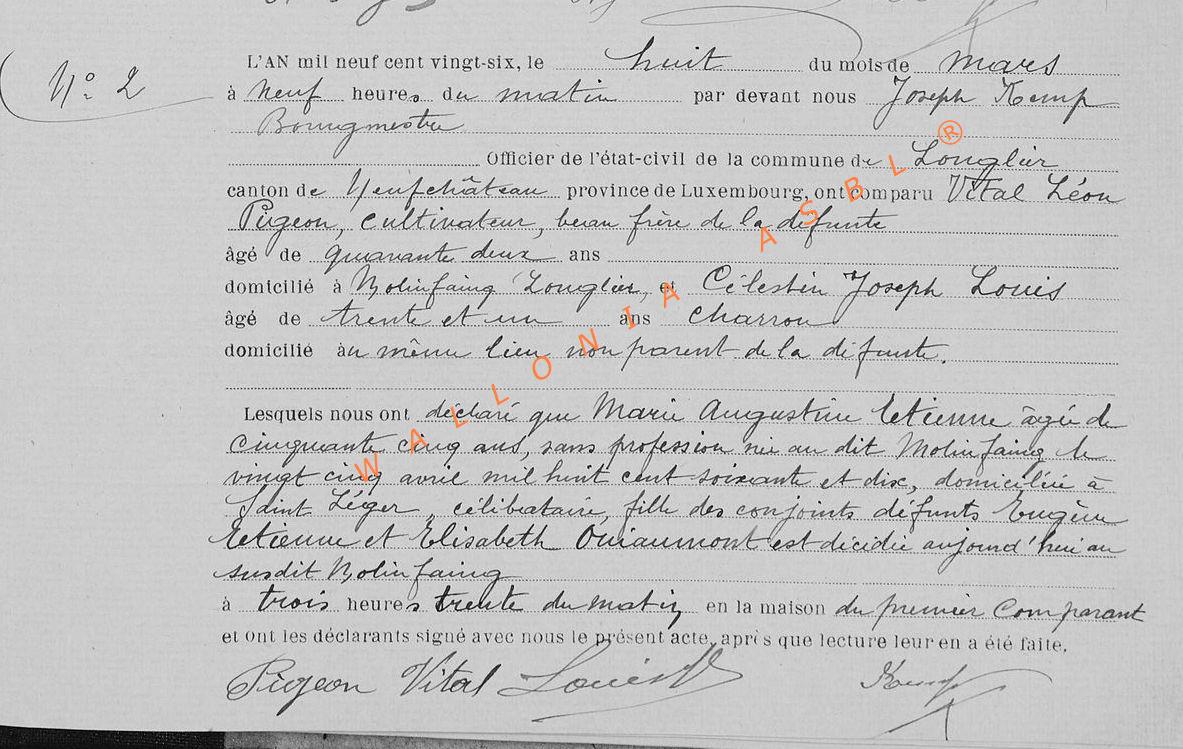 N° 2
L'AN mil neuf cent vingt-six, le huit du mois de mars
à neuf heures du matin par devant nous Joseph Kemp
Bourgmestre
Officier de l'état-civil de la commune de Longlier
canton de Neufchâteau province de Luxembourg, ont comparu Vital Léon
Pigeon, cultivateur, beau frère de la défunte
âgé de quarante deux ans
domicilié à Molinfaing Longlier, et Célestin Joseph Louis
âgé de trente et un ans charron
domicilié au même lieu non parent de la défunte.
Lesquels nous ont déclaré que Marie Augustine Etienne âgée de
cinquante cinq ans, sans profession née au dit Molinfaing le
vingt cinq avril mil huit cent soixante et dix, domiciliée à
Saint Léger, célibataire, fille des conjoints défunts Eugène
Etienne et Elisabeth Ouiaumont est décédée aujourd'hui au
susdit Molinfaing
à trois heures trente du matin en la maison du premier Comparant
et ont les déclarants signé avec nous le présent acte, après que lecture leur en a été faite.
Pigeon Vital Louis Kemp
WALLONIA ASBL ®